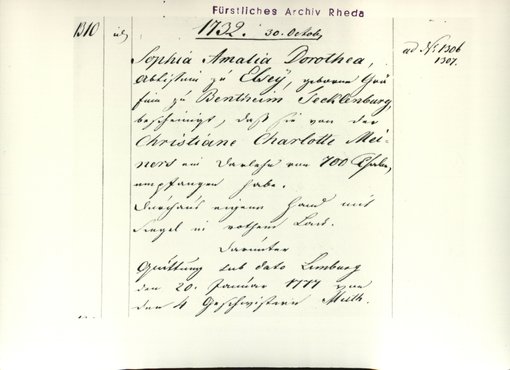 Fürstliches Archiv Rheda
1310
1732. 30. Octob.
ad No. 1306
1307.
Sophia Amalia Dorothea,
Abtißin zu Elsey, geborne Grä-
fin zu Bentheim Tecklenburg,
bescheinigt, daß sie von der
Christiane Charlotte Mei-
ners ein Darlehn von 700 Thaler,
empfangen habe.
Durchaus eigene Hand mit
Siegel in rothem Lack.
Darunter
Quittung sub dato Limburg
den 20. Januar 1777 von
den 4 Geschwistern Muth.